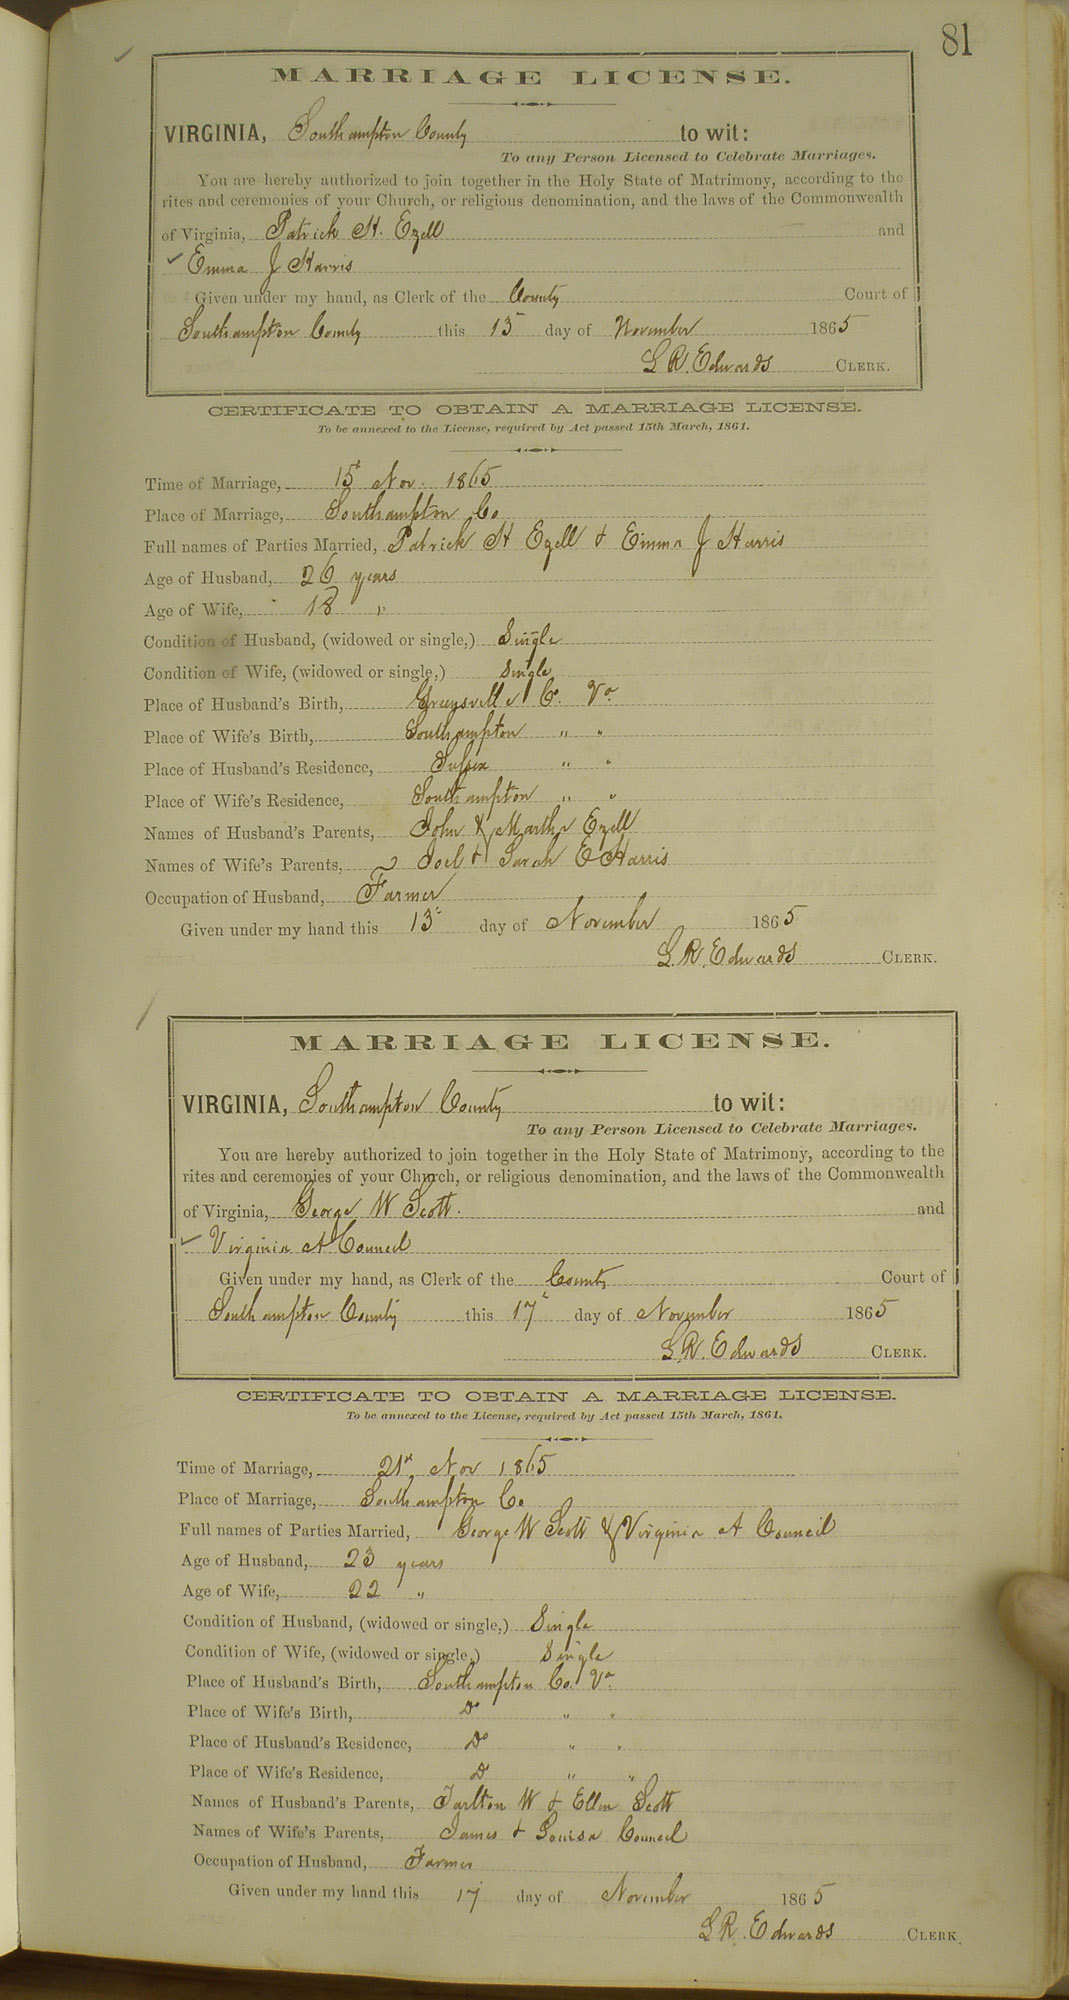 81
MARRIAGE LICENSE.
VIRGINIA, Southampton County to wit:
To any Person Licensed to Celebrate Marriages.
You are hereby authorized to join together in the Holy State of Matrimony, according to the
rites and ceremonies of your Church, or religious denomination, and the laws of the Commonwealth
of Virginia, Patrick H. Ezell and
Emma J Harris
Given under my hand, as Clerk of the County Court of
Southampton County this 13 day of November 1865
L R. Edwards CLERK.
CERTIFICATE TO OBTAIN A MARRIAGE LICENSE.
To be annexed to the License, required by Act passed 15th March, 1861.
Time of Marriage, 15t Nov. 1865
Place of Marriage, Southampton Co
Full names of Parties Married, Patrick H Ezell & Emma J Harris
Age of Husband, 26 years
Age of Wife, 18 "
Condition of Husband, (widowed or single,) Single
Condition of Wife, (widowed or single,) Single
Place of Husband's Birth, Greensville Co. Va
Place of Wife's Birth, Southampton " "
Place of Husband's Residence, Sussex " "
Place of Wife's Residence, Southampton " "
Names of Husband's Parents, John & Martha Ezell
Names of Wife's Parents, Joel & Sarah E Harris
Occupation of Husband, Farmer
Given under my hand this 13 day of November 1865
L. R. Edwards CLERK.
MARRIAGE LICENSE.
VIRGINIA, Southampton County to wit:
To any Person Licensed to Celebrate Marriages.
You are hereby authorized to join together in the Holy State of Matrimony, according to the
rites and ceremonies of your Church, or religious denomination, and the laws of the Commonwealth
of Virginia, George W Scott. and
Virginia A Council
Given under my hand, as Clerk of the County Court of
Southampton County this 17 day of November 1865
L. R. Edwards CLERK.
CERTIFICATE TO OBTAIN A MARRIAGE LICENSE.
To be annexed to the License, required by Act passed 15th March, 1861.
Time of Marriage, 21st Nov 1865
Place of Marriage, Southampton Co
Full names of Parties Married, George W Scott & Virginia A Council
Age of Husband, 23 years
Age of Wife, 22 "
Condition of Husband, (widowed or single,) Single
Condition of Wife, (widowed or single,) Single
Place of Husband's Birth, Southampton Co. Va
Place of Wife's Birth, Do " "
Place of Husband's Residence, Do " "
Place of Wife's Residence, Do " "
Names of Husband's Parents, Tarlton W & Ellen Scott
Names of Wife's Parents, James & Louisa Council
Occupation of Husband, Farmer
Given under my hand this 17 day of November 1865
L R. Edwards CLERK.